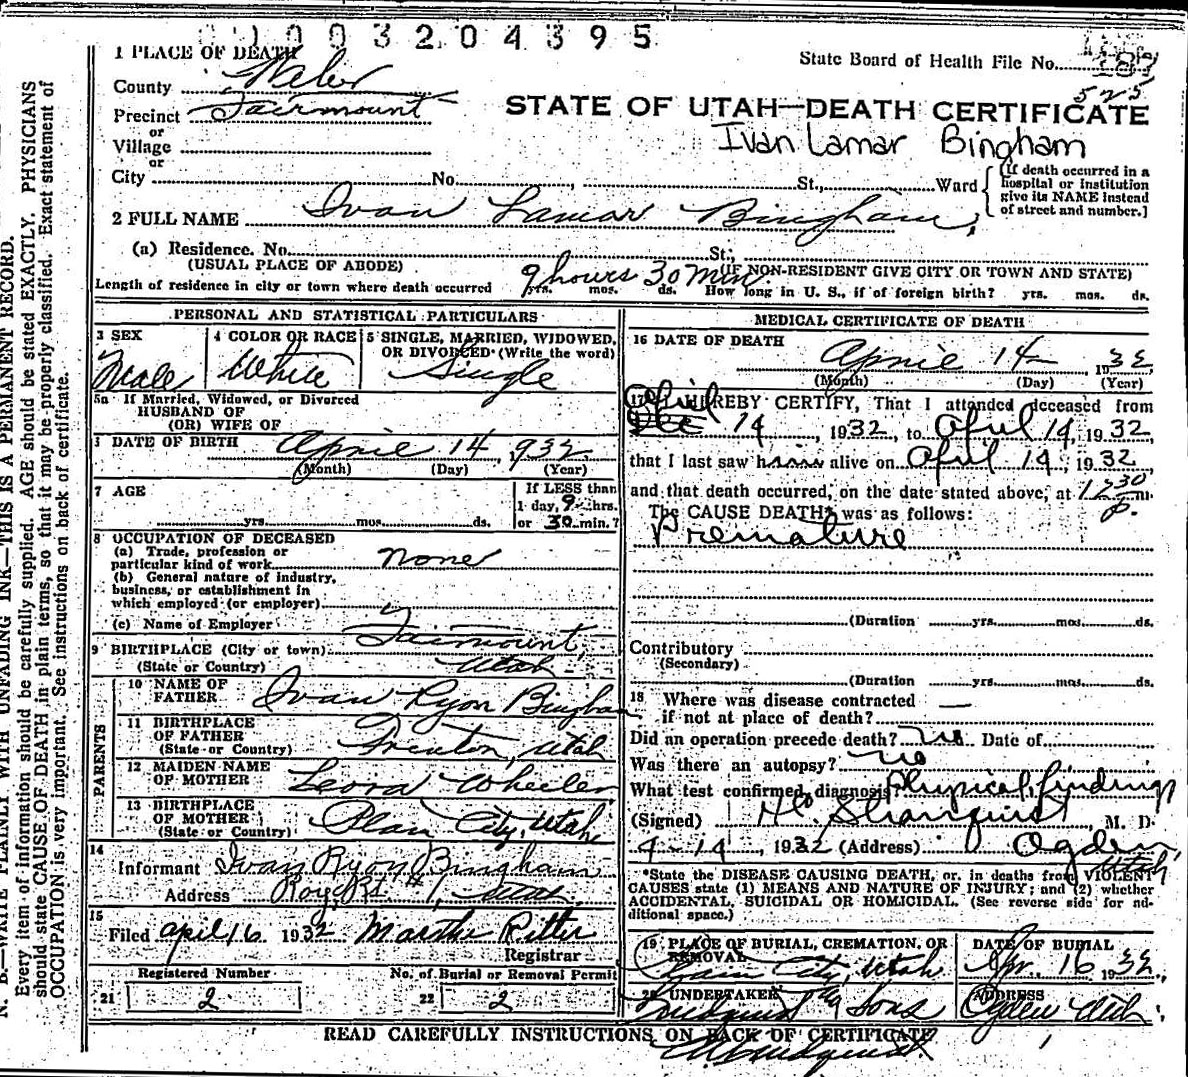 0 0 0 3 2 0 4 3 9 5
1 PLACE OF DEATH
State Board of Health File No. 187
525
County Weber
Precinct Fairmount
STATE OF UTAH—DEATH CERTIFICATE
or
Village
Ivan Lamar Bingham
or
City No. , St., Ward
[If death occurred in a hospital or institution give its NAME instead of street and number.]
2 FULL NAME Ivan Lamar Bingham,
(a) Residence. No. St.;
(USUAL PLACE OF ABODE) (IF NON-RESIDENT GIVE CITY OR TOWN AND STATE)
Length of residence in city or town where death occurred 9 hours 30 Min. yrs. mos. ds. How long in U. S., if of foreign birth? yrs. mos. ds.
PERSONAL AND STATISTICAL PARTICULARS
3 SEX
Male
4 COLOR OR RACE
White
5 SINGLE, MARRIED, WIDOWED, OR DIVORCED (Write the word)
Single
5a If Married, Widowed, or Divorced
HUSBAND OF
(OR) WIFE OF
DATE OF BIRTH April 14, 932
(Month) (Day) (Year)
7 AGE
yrs. mos. ds.
If LESS than
1 day, 9 hrs.
or 30 min.?
8 OCCUPATION OF DECEASED
(a) Trade, profession or
particular kind of work none
(b) General nature of industry,
business, or establishment in
which employed (or employer)
(c) Name of Employer
9 BIRTHPLACE (City or town) Fairmount,
(State or Country) Utah
PARENTS
10 NAME OF FATHER Ivan Ryon Bingham
11 BIRTHPLACE OF FATHER
(State or Country) Trenton, Utah
12 MAIDEN NAME OF MOTHER Leora Wheeler
13 BIRTHPLACE OF MOTHER
(State or Country) Plain City, Utah
14
Informant Ivan Ryon Bingham
Address Roy R #1, Utah
15
Filed April 16 1932 Martha Ritter
Registrar
Registered Number
21 2
No. of Burial or Removal Permit
22 2
MEDICAL CERTIFICATE OF DEATH
16 DATE OF DEATH
April 14 1932
(Month) (Day) (Year)
17 I HEREBY CERTIFY, That I attended deceased from
April 14, 1932, to April 14, 1932,
that I last saw him alive on April 14, 1932
and that death occurred, on the date stated above, at 12 30 p. m.
The CAUSE DEATH* was as follows:
Premature
(Duration yrs. mos. ds.
Contributory
(Secondary)
(Duration yrs. mos. ds.
18 Where was disease contracted —
if not at place of death?
Did an operation precede death? no Date of
Was there an autopsy? no
What test confirmed diagnosis? Physical findings
(Signed) , M. D.
4-14, 1932 (Address) Ogden, Utah
*State the DISEASE CAUSING DEATH, or, in deaths from VIOLENT
CAUSES state (1) MEANS AND NATURE OF INJURY; and (2) whether
ACCIDENTAL, SUICIDAL OR HOMICIDAL. (See reverse side for additional space.)
19 PLACE OF BURIAL, CREMATION, OR REMOVAL
Plain City, Utah
DATE OF BURIAL
Apr. 16 1932
20 UNDERTAKER
Lindquist & Sons
ADDRESS
Ogden Utah
READ CAREFULLY INSTRUCTIONS ON BACK OF CERTIFICATE
N. B.—WRITE PLAINLY WITH UNFADING INK—THIS IS A PERMANENT RECORD.
Every item of information should be carefully supplied. AGE should be stated EXACTLY. PHYSICIANS
should state CAUSE OF DEATH in plain terms, so that it may be properly classified. Exact statement of
OCCUPATION is very important. See instructions on back of certificate.